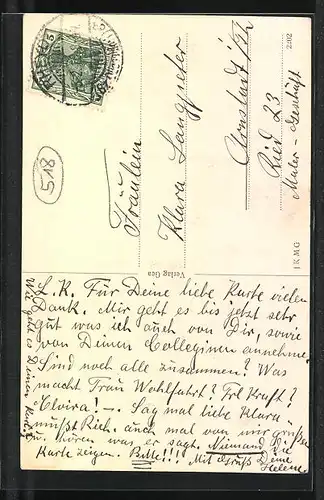 518
Fräulein
Klara Langpeter
Arnstadt i/Th
Ried 23
Maler-Geschäft
2:02
Verlag Gea
I K M G
L. K. Für Deine liebe Karte vielen
Dank. Mir geht es bis jetzt sehr
gut was ich auch von Dir, sowie
von Deinen Colleginen annehme.
Sind noch alle zusammen? Was
macht Frau Wohlfahrt? Frl Kraft?
Elvira! – Sag mal liebe Klara
mußt Rich. auch mal von mir grüßen
u. hören was er sagt. Niemand die
Karte zeigen. Bitte!!! Mit Gruß Deine
Helene
Wie geht es Deinen